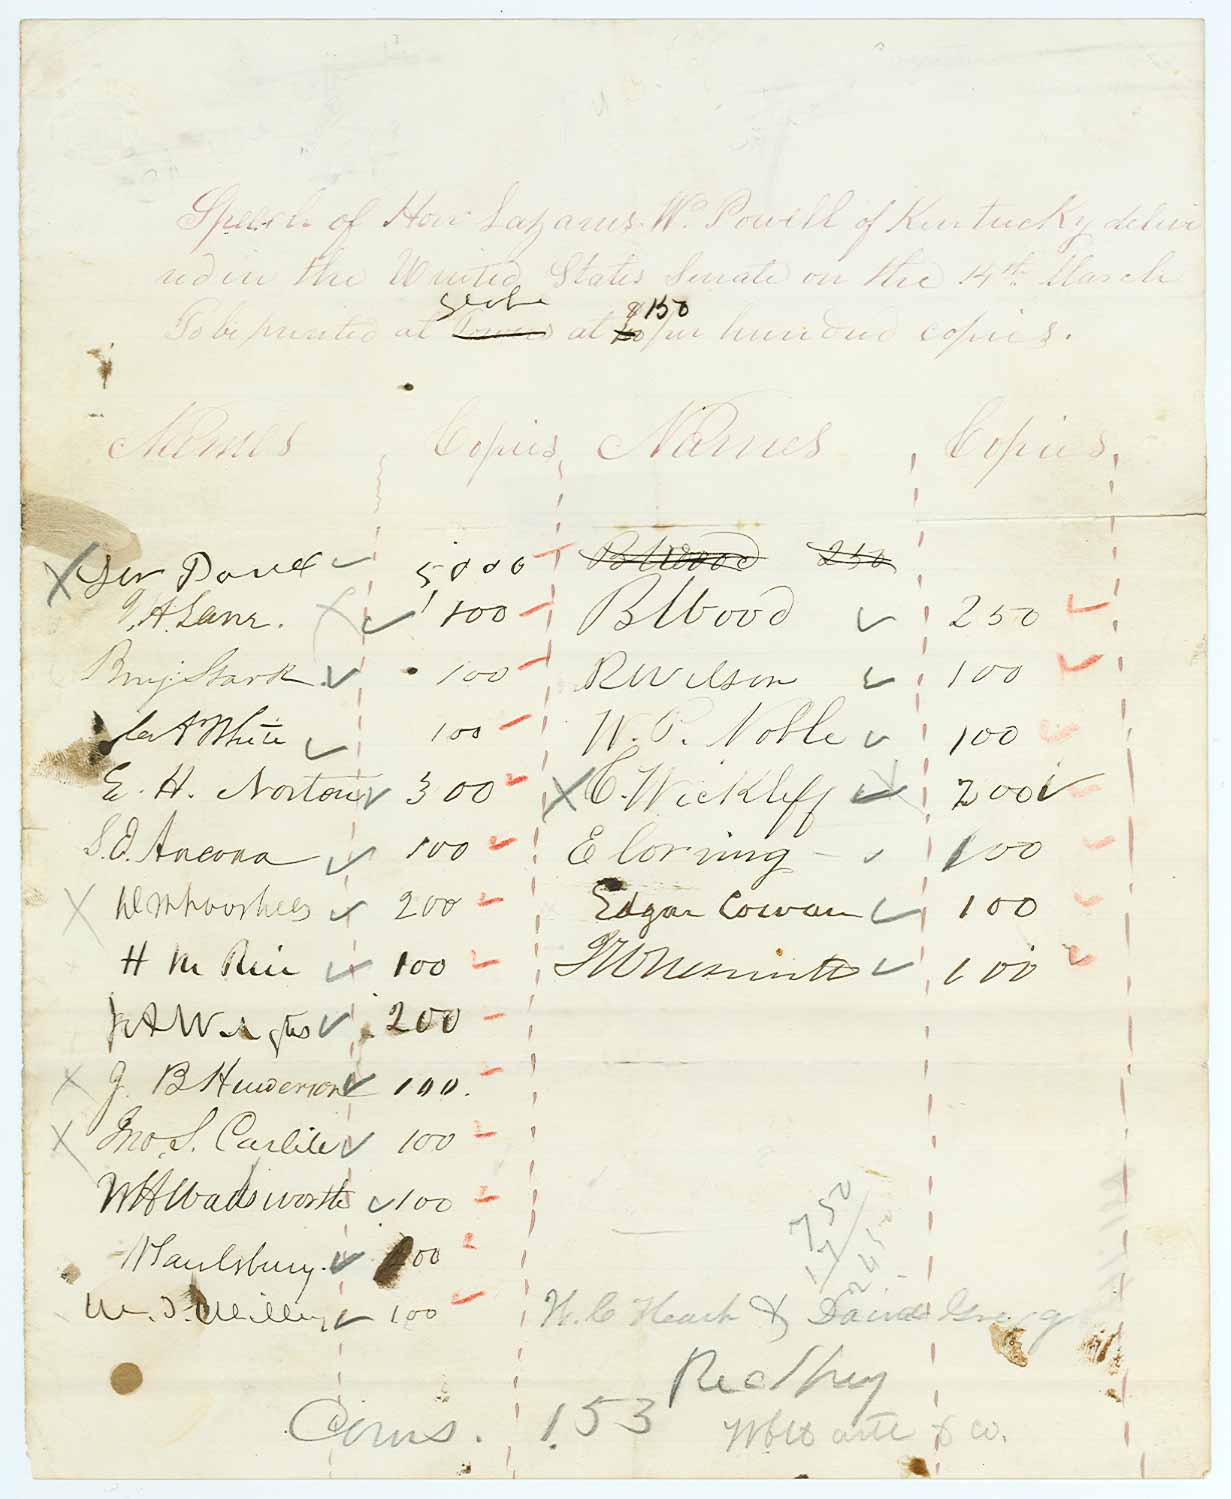 Speech of Hon Lazarus W. Powell of Kentucky deliv
ered in the United States Senate on the 14th March
Globe $1 50
To be printed at Towers at per hundred copies.
Names Copies Names Copies
Powell 5000 B Wood 250
Lane. 100 B Wood 250
Benj. Stark 100 R Wilson 100
A White 100 W. P. Noble 100
E. H. Norton 300 C. Wickliff 200
S. E. Ancona 100 E Corning 100
D W Voorhees 200 Edgar Cowan 100
H M Rice 100 J W Nesmith 100
J A Wright 200
J. B Henderson 100.
Jno. S. Carlile 100
W H Wadsworth 100
Saulsbury. 100
Willey 100
750
17
2450
W. C. & David
Coms. 153
& co.